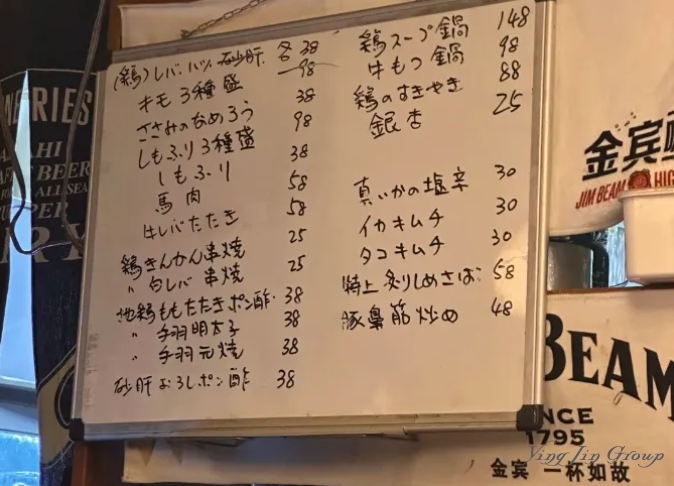 (鶏)レバ、ハツ、砂肝 各38
キモ3種盛 98
ささみのなめろう 38
しもふり3種盛 98
しもふり 38
馬肉 58
牛レバたたき 58
鶏きんかん串焼 25
〃 白レバ串焼 25
地鶏ももたたきポン酢 38
〃 手羽明太子 38
〃 手羽元焼 38
砂肝おろしポン酢 38
鶏スープ鍋 148
牛もつ鍋 98
鶏のすきやき 88
銀杏 25
真いかの塩辛 30
イカキムチ 30
タコキムチ 30
特上炙りしめさば 58
豚鼻筋炒め 48
RIES
BEER
ALL SEA
PER
RY
金宾
JIM BEAM HIG
BEAM
NCE
1795
金宾 一杯如故
Ying Jin Group